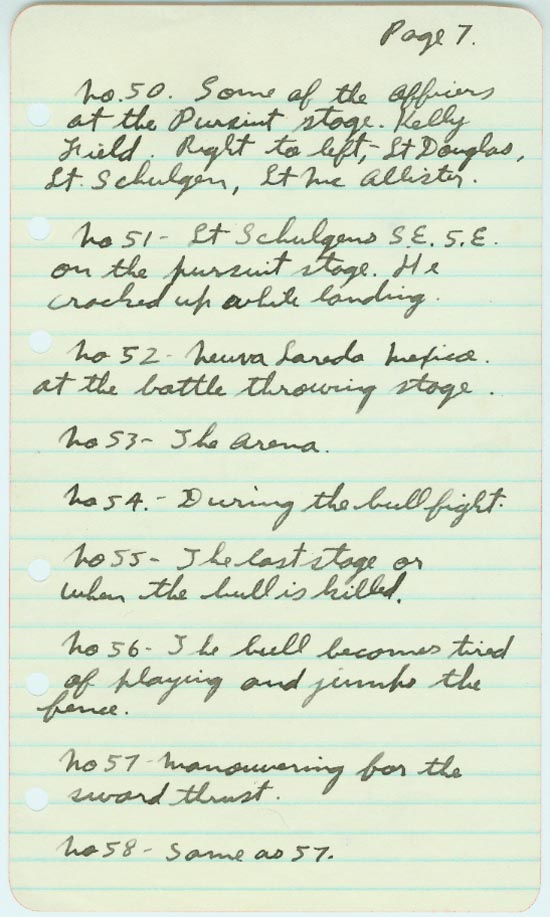 Page 7.
No. 50. Some of the officers
at the Pursuit stage. Kelly
Field. Right to left, Lt Douglas,
Lt. Schulgen, Lt Mc Allister.
No 51 - Lt Schulgens S.E. 5.E.
on the pursuit stage. He
cracked up while landing.
No 52 - Neuva Laredo Mexico.
at the battle throwing stage.
No 53 - The arena.
No 54. - During the bull fight.
No 55 - The last stage or
when the bull is killed.
No 56 - The bull becomes tired
of playing and jumps the
fence.
No 57 - Manouvering for the
sword thrust.
No 58 - Same as 57.